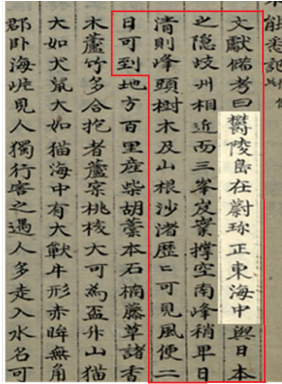 能悉記
文獻備考曰欝陵島在蔚珍正東海中與日本
之隱岐州相近而三峯岌嶪撑空南峰稍早日
清則峰頭樹木及山根沙渚歷〻可見風便二
日可到地方百里産柴胡藁本石楠藤草諸香
木蘆竹多合抱者蘆宲桃核大可爲盃升山猫
大如犬䑕大如猫海中有大獸牛形赤眸無角
郡卧海岸見人獨行害之遇人多走入水名可